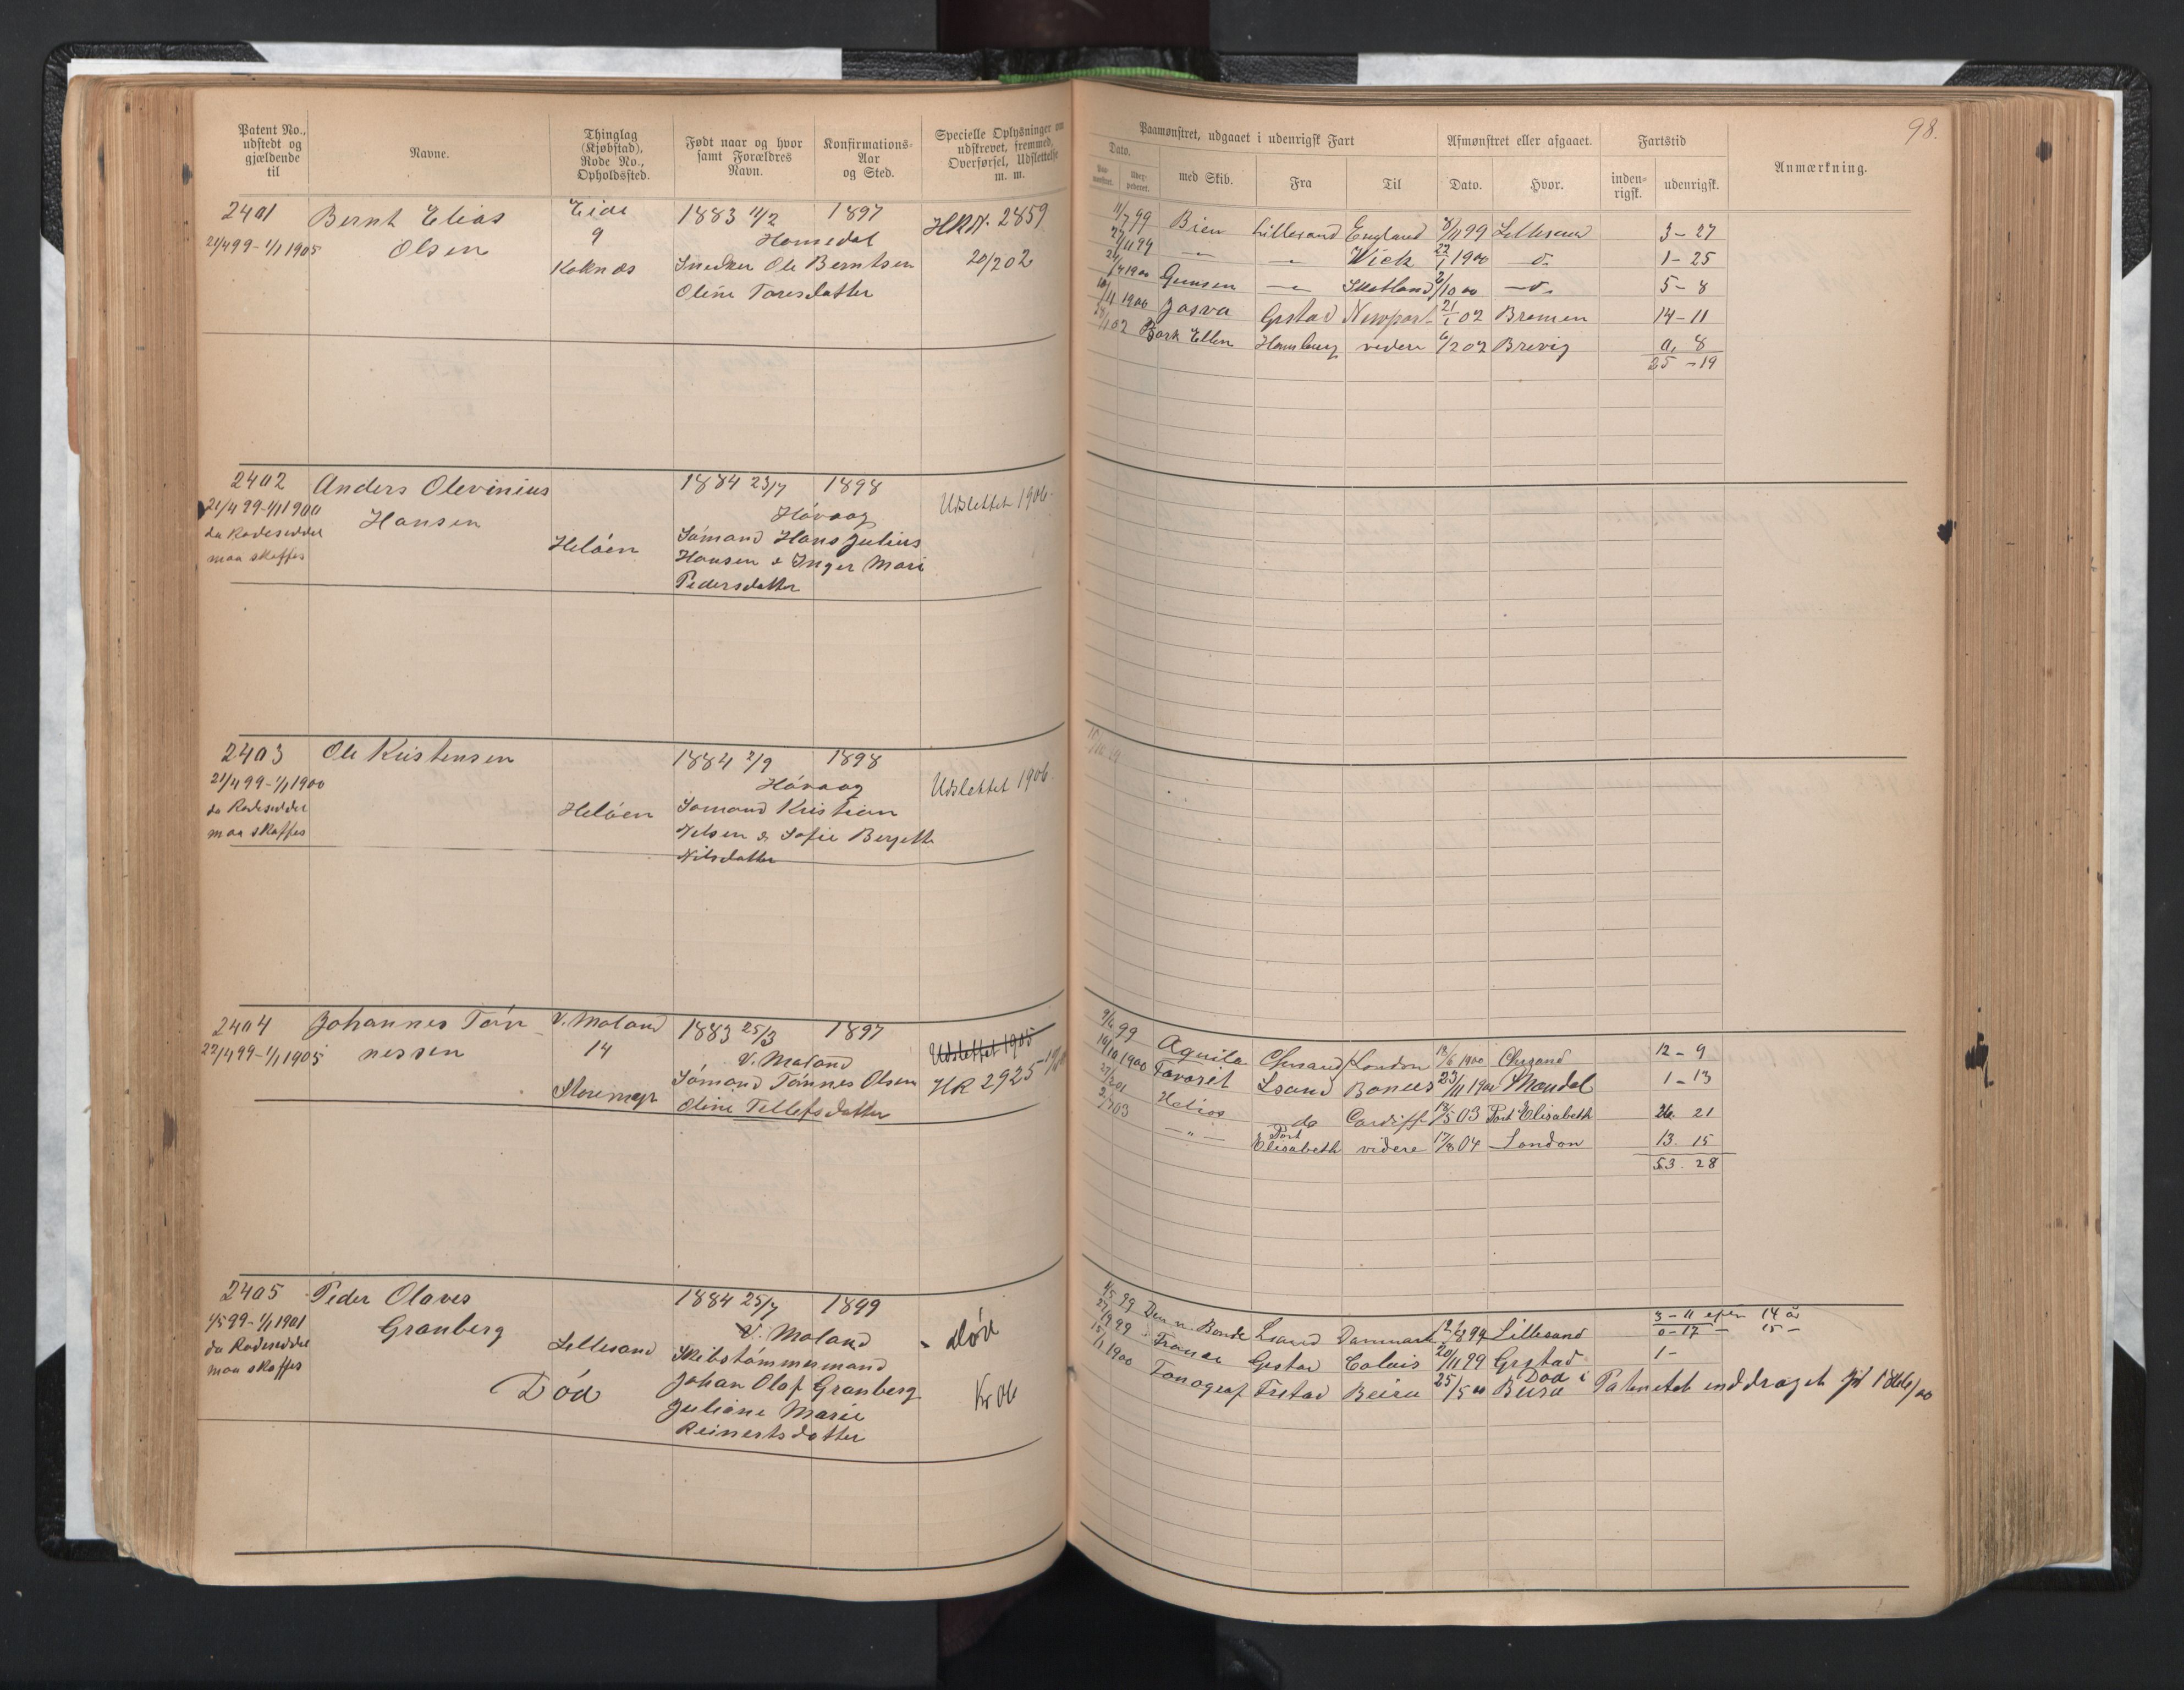 98.
Patent No., udstedt og gjældende til
Navne.
Thinglag (Kjøbstad), Rode No., Opholdssted.
Født naar og hvor samt Forældres Navn.
Konfirmations-Aar og Sted.
Specielle Oplysninger om udskrevet, fremmed, Overførsel, Udslettelse m. m.
Paamønstret, udgaaet i udenrigsk Fart
Dato.
med Skib.
Fra
Til
Afmønstret eller afgaaet.
Dato.
Hvor.
Fartstid
inden-rigsk.
udenrigsk.
Anmærkning.
2401
21/4 99 - 1/1 1905
Bernt Elias
Olsen
Eide
9
Koknæs
1883 11/2 1897
Homedal
Snedker Ole Berntsen
Oline Taresdatter
HRN. 2859
20/2 02
11/7 99 Bien Lillesand England 8/11 99 Lillesand 3-27
Wick 22/1 1900 do 1-25
Skotland 10 00 do 5-8
11 1900 Josva Grstad Newport 21/1 02 Bremen 14-11
02 Bark Ellen Hamburg videre 6/2 02 Brevig 0, 8
25-19
2402
21/4 99 - 1/1 1900
da Rodeseddel
maa skaffes
Anders Olevinius
Hansen
Heløen
1884 23/7 1898
Høvaag
Sømand Hans Julius
Hansen & Inger Mari
Pedersdatter
Udslettet 1906.
2403
21/4 99 - 1/1 1900
da Rodeseddel
maa skaffes
Ole Kristensen
Heløen
1884 2/9 1898
Høvaag
Sømand Kristian
Jelsen & Sofie Bergette
Nilsdatter
Udslettet 1906.
2404
22/4 99 - 1/1 1905
Johannes Tøn
nessen
V. Moland
14
Storemyr
1883 25/3 1897
V. Moland
Sømand Tønnes Olsen
Oline Tellefsdatter
Udslettet 1905
HR 2925
9/6 99 Aquila Chrsand London 18/6 1900 Chrsand 12-9
10/10 1900 Favorit Lsand 23/11 1900 Mandal 1-13
Helios do Cardiff 18/5 03 Port Elisabeth 26. 21
03 Port Elisabeth videre 17/8 04 London 13. 15
53. 28
2405
4/5 99 - 1/1 1901
da Rodeseddel
maa skaffes
Peder Olaves
Granberg
Død
Lillesand
1884 25/7 1899
V. Moland
Skibstømmermand
Johan Olaf Granberg
Juliane Marie
Reinertsdatter
død
4/5 99 Den n. Bonde Lsand Danmark 99 Lillesand 3-11 efter 14 år
0-17 - 15 -
99 Grstad Calais 20/11 99 Grstad 1-
1900 Fonograf Frstad Beira 25/5 00 Død i Beira Patentet inddraget